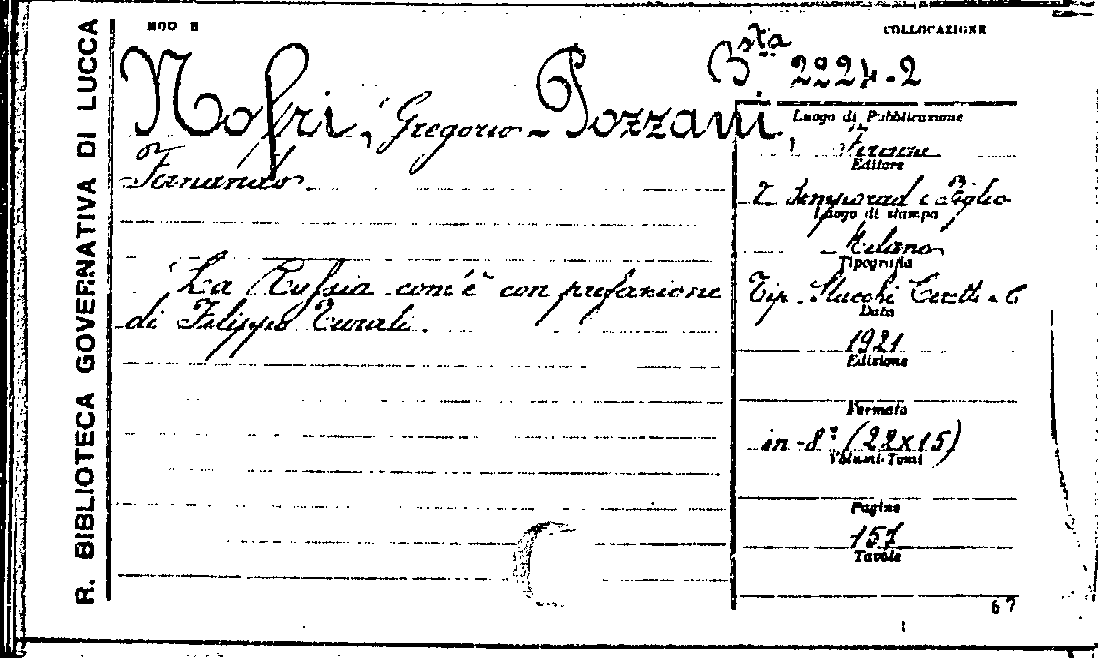 R. BIBLIOTECA GOVERNATIVA DI LUCCA
MOD B
COLLOCAZIONE
Bsta 2224-2
Nofri, Gregorio - Pozzani,
Fernando
La Russia com'è con prefazione
di Filippo Turati.
Luogo di Pubblicazione
Firenze
Editore
Bemporad e Figlio
Luogo di stampa
Milano
Tipografia
Tip. Stucchi Ceretti e C
Data
1921
Edizione
Formato
in-8° (22x15)
Volumi-Tomi
Pagine
157
Tavole
67